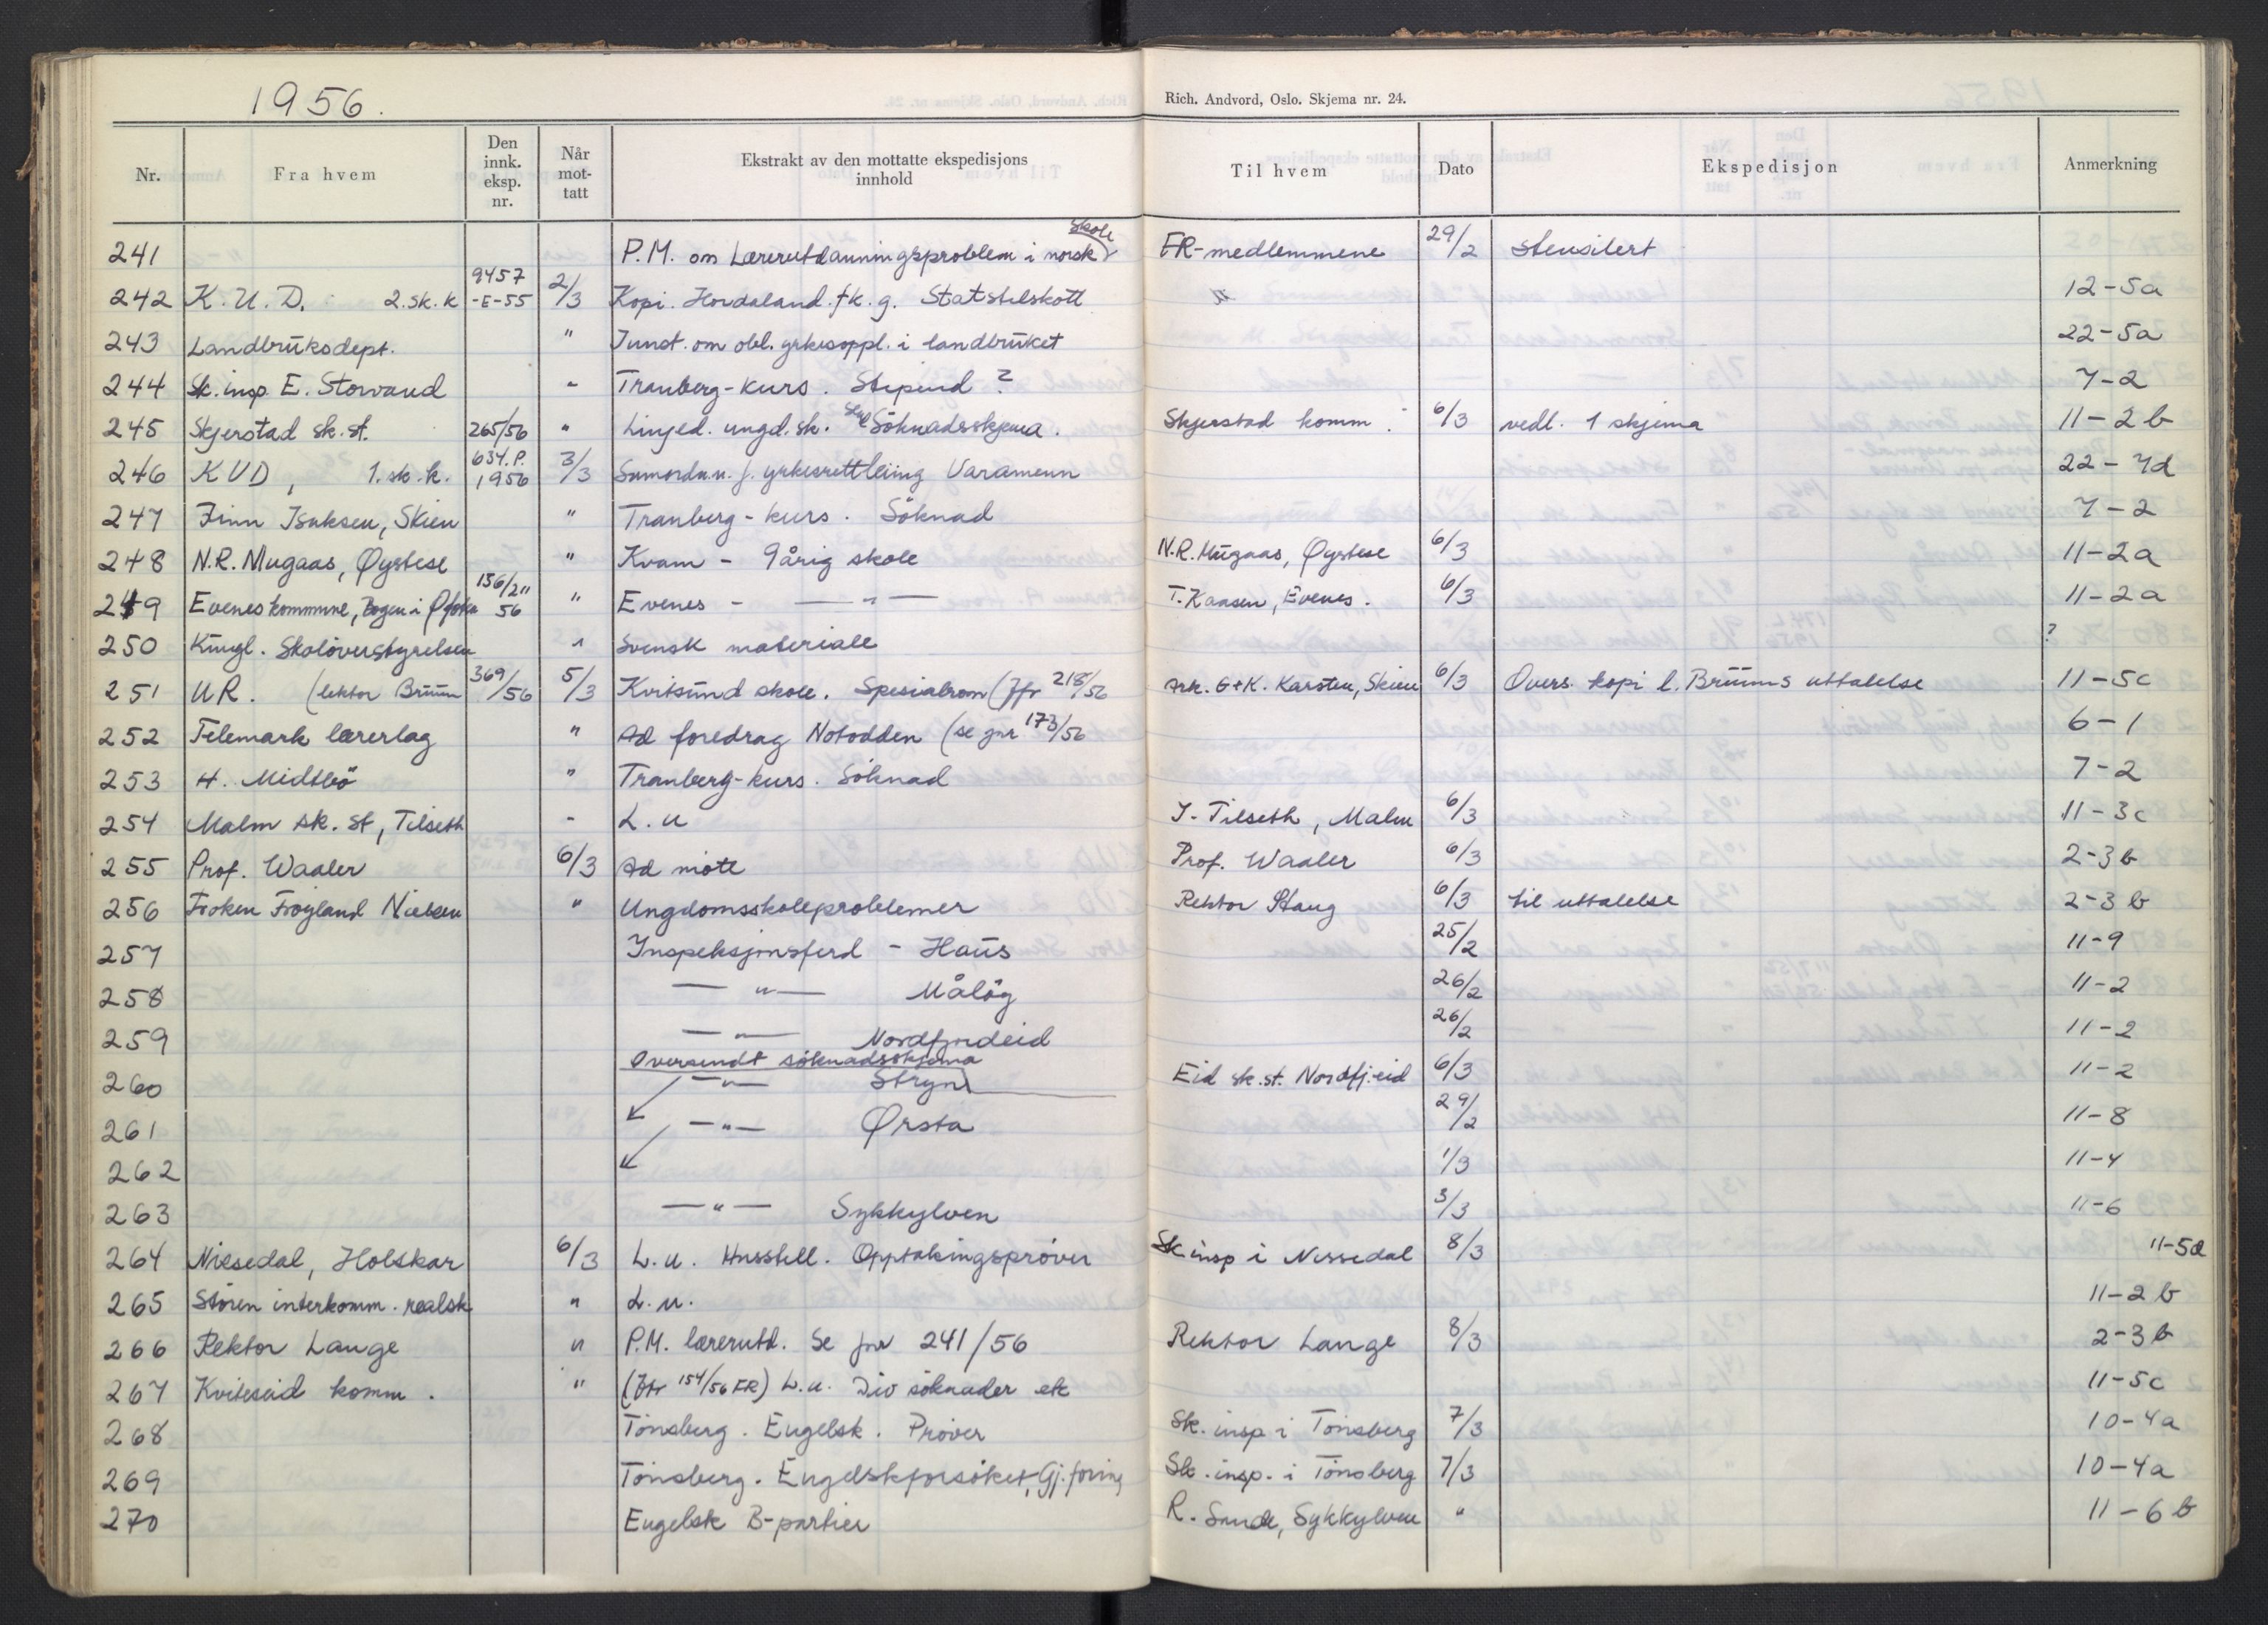 1956.
Rich. Andvord, Oslo. Skjema nr. 24.
Nr. Fra hvem Den innk. eksp. nr. Når mot-tatt Ekstrakt av den mottatte ekspedisjons innhold Til hvem Dato Ekspedisjon Anmerkning
241 P.M. om Lærerutdanningsproblem i norsk skole FR-medlemmene 29/2 stensilert
242 K.U.D. 2.sk.k 9457-E-55 2/3 Kopi. Hordaland.fk.g. Statstilskott 12-5a
243 Landbruksdept. " Innst. om obl. yrkesoppl. i landbruket 22-5a
244 Sk.insp. E. Storvand " Tranberg-kurs. Stipend? 7-2
245 Skjerstad sk.st. 265/56 " Linjed. ungd.sk. Søknadsskjema. Skjerstad komm. 6/3 vedl. 1 skjema 11-2b
246 KUD, 1.sk.k. 634.P.1956 3/3 Samordn.n. f. yrkesrettleiing Varamenn 22-7d
247 Finn Isaksen, Skien " Tranberg-kurs. Söknad 7-2
248 N.R. Mugaas, Øystese " Kvam - 9årig skole N.R. Mugaas, Øystese 6/3 11-2a
249 Evenes kommune, Bogen i Ofoten 156/2" 56 " Evenes - —"— T. Kaasen, Evenes. 6/3 11-2a
250 Kungl. Skolöverstyrelsen " Svensk materiale ?
251 UR. (lektor Bruun 369/56 5/3 Kvitsund skole. Spesialrom (Jfr 218/56 Ark. G+K. Karsten, Skien 6/3 Overs. kopi l. Bruuns uttalelse 11-5c
252 Telemark lærerlag " Ad foredrag Notodden (se jnr 173/56 6-1
253 H. Midtbö " Tranberg-kurs. Söknad 7-2
254 Malm sk. st, Tilseth - L.u J. Tilseth, Malm 6/3 11-3c
255 Prof. Waaler 6/3 Ad møte Prof. Waaler 6/3 2-3b
256 Frøken Frøyland Nielsen " Ungdomsskoleproblemer Rektor Staug 6/3 til uttalelse 2-3b
257 Inspeksjonsferd - Haus 25/2 11-9
258 —"— Målöy 26/2 11-2
259 —"— Nordfjordeid 26/2 11-2
Oversendt söknadsskjema
260 —"— Stryn Eid sk.st. Nordfj.eid 6/3 11-2
261 —"— Ørsta 29/2 11-8
262 1/3 11-4
263 —"— Sykkylven 3/3 11-6
264 Nissedal, Holskar 6/3 L.u. Husstell. Opptakingsprøver Sk.insp i Nissedal 8/3 11-5d
265 Støren interkomm. realsk " L.u. 11-2b
266 Rektor Lange " P.M. lærerutd. Se jnr 241/56 Rektor Lange 8/3 2-3b
267 Kviteseid komm. " (Jfr 154/56 FR) L.u. Div söknader etc 11-5c
268 Tönsberg. Engelsk. Prøver Sk. insp i Tönsberg 7/3 10-4a
269 Tönsberg. Engelskforsøket, Gj.föring Sk. insp. i Tönsberg 7/3 10-4a
270 Engelsk B-partier R. Sande, Sykkylven " 11-6b